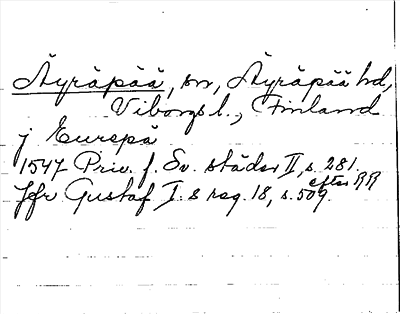 Äyräpää, sn, Äyräpää hd,
Viborgs l., Finland
j Eurepä
1547 Priv. f. Sv. städer II, s. 281.
efter RR
Jfr Gustaf I.s reg. 18, s. 509.